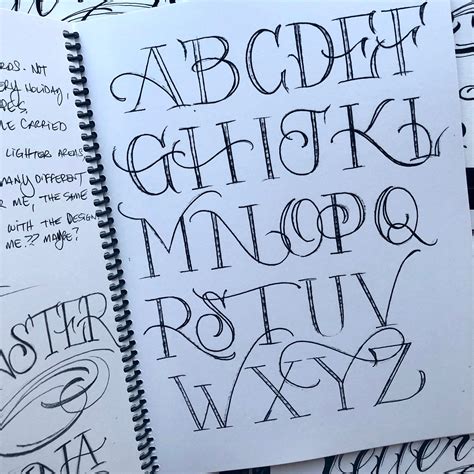 NOT
HOLIDAY,
CARRIED
LIGHTER AREAS
MANY DIFFERENT
ME, THE SAME
WITH THE DESIGN
ME?? MAYBE?
ABCDEF
GHIJKL
MNOPQ
RSTUV
WXYZ